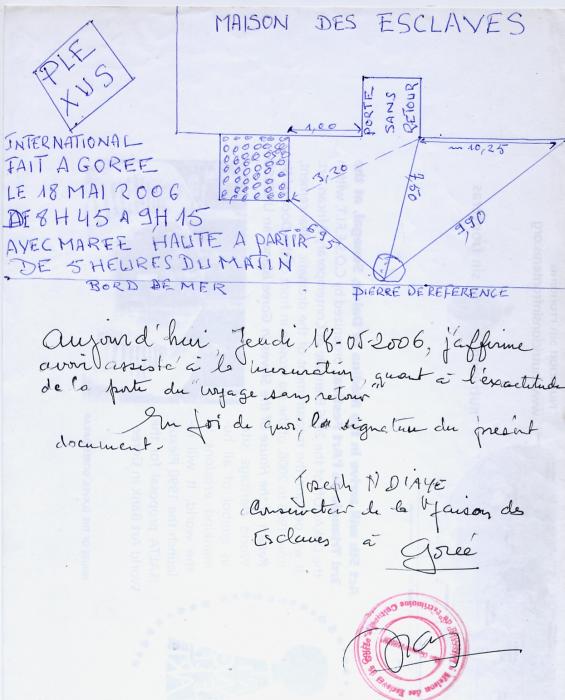 MAISON DES ESCLAVES
PLEXUS
PORTE
SANS
RETOUR
1,00
3,20
10,25
7,50
6,95
9,90
INTERNATIONAL
FAIT A GOREE
LE 18 MAI 2006
DE 8H45 A 9H15
AVEC MAREE HAUTE A PARTIR
DE 5 HEURES DU MATIN
BORD DE MER
PIERRE DE REFERENCE
Aujourd'hui, Jeudi 18-05-2006, j'affirme
avoir assisté à la mesuration, quant à l'exactitude
de la porte du "voyage sans retour"
En foi de quoi, la signature du présent
document.
Joseph NDIAYE
Conservateur de la Maison des
Esclaves à Gorée